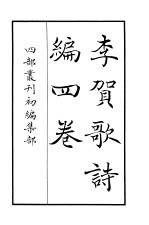 李賀歌詩
編四卷
四部叢刊初編集部